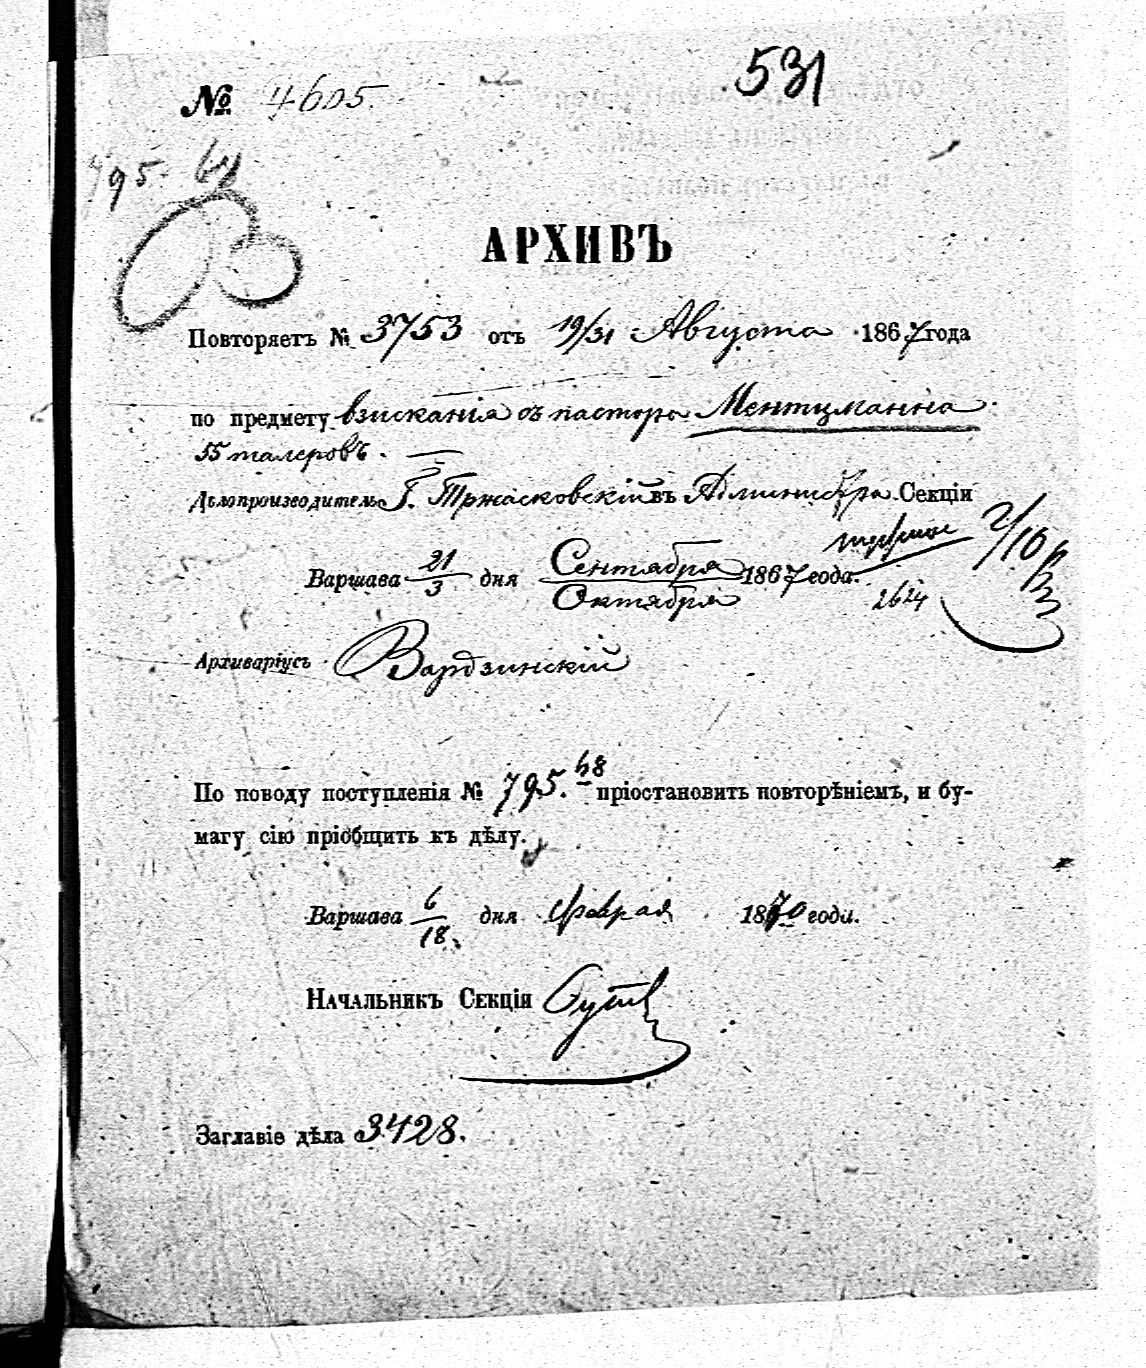 531
№ 4605
795. 68
АРХИВЪ
Повторяетъ № 3753 отъ 19/31 Августа 1867 года
по предмету взисканія съ пастора Ментцманна
55 талеровъ.
Дѣлопроизводитель Г. Тржасковскій въ Администр. Секціи
2/10
Варшава 21/3 дня Сентября/Октября 1867 года.
2624
Архиваріусъ Вардзинскій
По поводу поступленія № 795. 68 пріостановить повторѣніемъ, и бу-
магу сію пріобщить къ дѣлу.
Варшава 6/18 дня Февраля 1870 года.
Начальникъ Секціи
Заглавіе дѣла 3428.